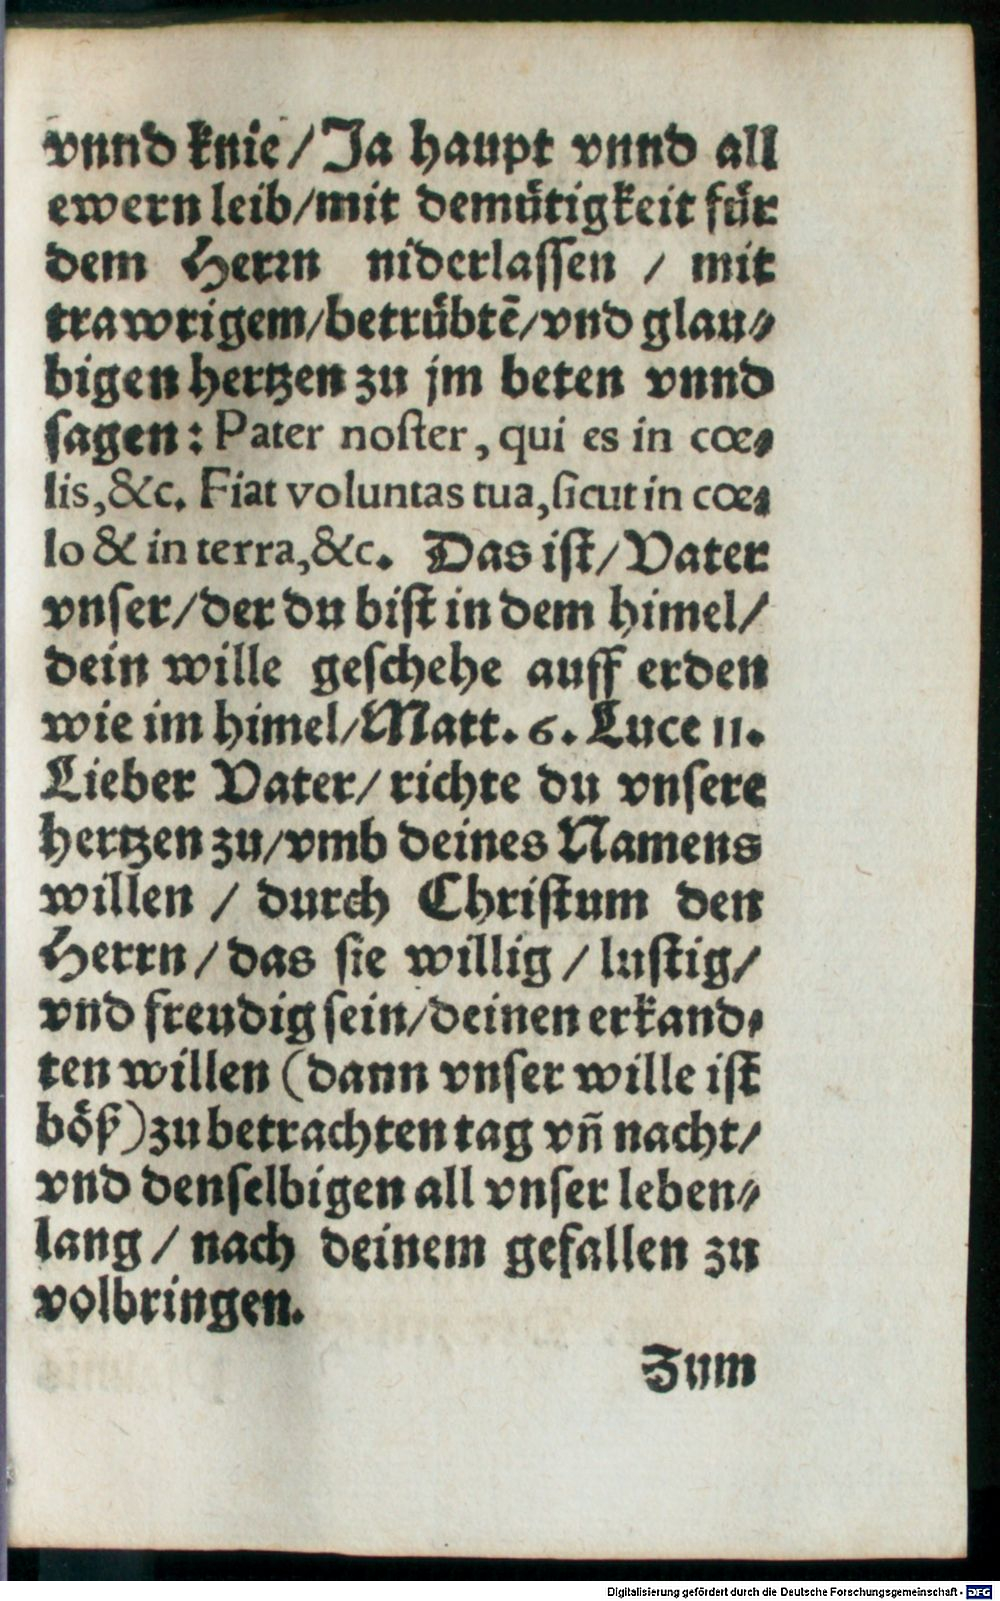 vnnd knie/Ja haupt vnnd all
ewern leib/mit demuͤtigkeit fuͤr
dem Herꝛn niderlassen / mit
trawrigem/betruͤbtẽ/vnd glau⸗
bigen hertzen zu jm beten vnnd
sagen: Pater noster, qui es in cœ⸗
lis, &c. Fiat voluntas tua, sicut in cœ⸗
lo & in terra, &c. Das ist/Vater
vnser/der du bist in dem himel/
dein wille geschehe auff erden
wie im himel/Matt. 6. Luce 11.
Lieber Vater/richte du vnsere
hertzen zu/vmb deines Namens
willen / durch Christum den
Herrn/das sie willig/lustig/
vnd freudig sein/deinen erkand⸗
ten willen (dann vnser wille ist
boͤß) zu betrachten tag vñ nacht/
vnd denselbigen all vnser leben⸗
lang / nach deinem gefallen zu
volbringen.
Zum
Digitalisierung gefördert durch die Deutsche Forschungsgemeinschaft - DFG